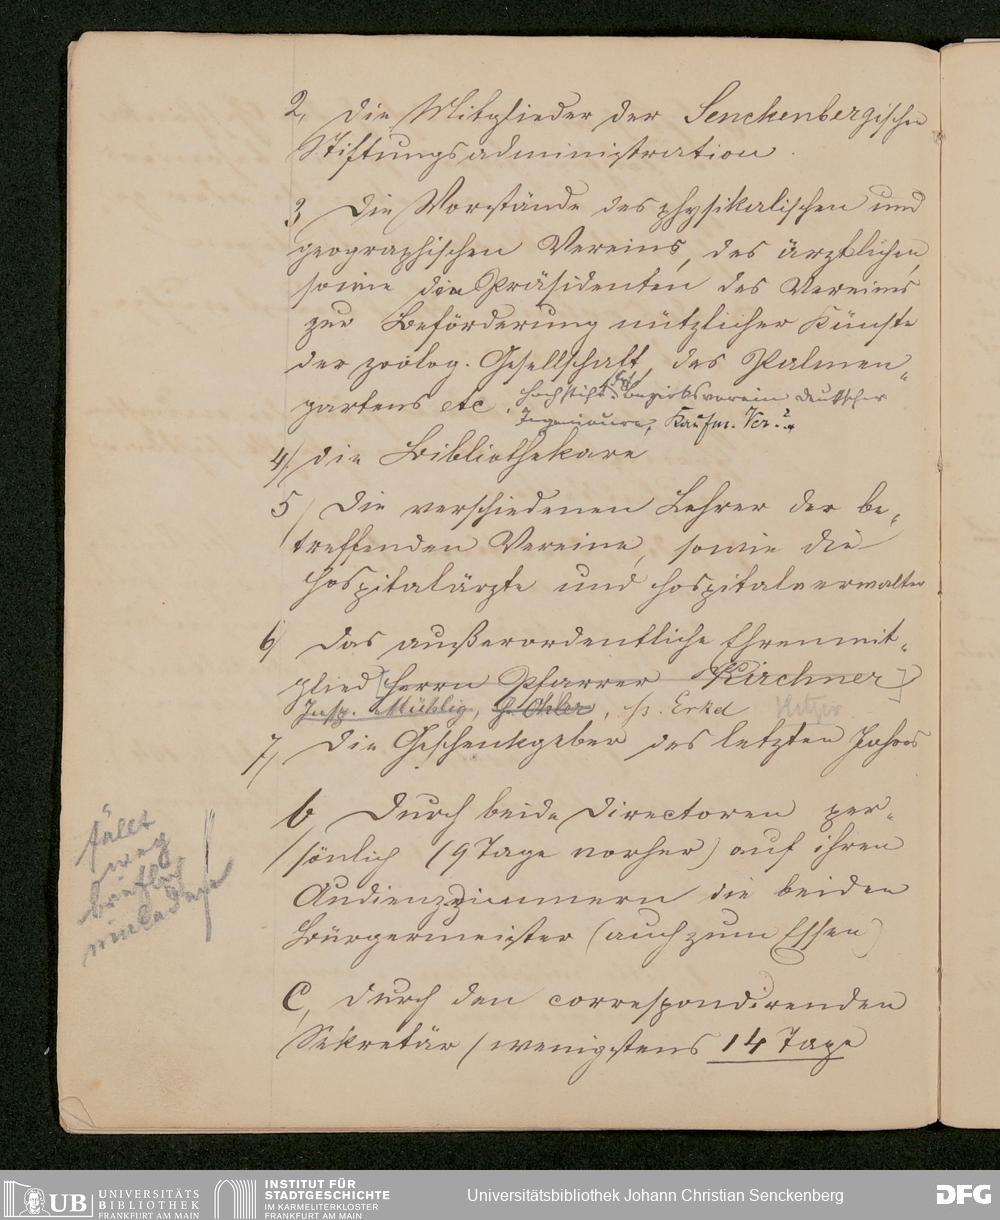 2, die Mitglieder der Senckenbergischen
Stiftungsadministration.
3 Die Vorstände des physikalischen und
geographischen Vereins, des ärztlichen,
sowie die Präsidenten des Vereins
zur Beförderung nützlicher Künste
der zoolog. Gesellschaft, des Palmen„
gartens etc. Hochstift, Bezirksverein deutscher
Ingenieure, Kaufm. Ver.
4/ die Bibliothekare
5/ Die verschiedenen Lehrer der be„
treffenden Vereine, sowie die
Hospitalärzte und Hospitalverwalter
6/ Das außerordentliche Ehrenmit„
glied [Herrn Pfarrer Kirchner]
Insp. Mühlig, Erkel
7/ Die Geschenkgeber des letzten Jahres
b, Durch beide Directoren per„
sönlich (9 Tage vorher) auf ihren
Audienzzimmern die beiden
Bürgermeister (auch zum Essen)
fällt
weg
brieflich
einladen
C, Durch den correspondirenden
Sekretär (wenigstens 14 Tage
UB UNIVERSITÄTS
BIBLIOTHEK
FRANKFURT AM MAIN
INSTITUT FÜR
STADTGESCHICHTE
IM KARMELITERKLOSTER
FRANKFURT AM MAIN
Universitätsbibliothek Johann Christian Senckenberg
DFG